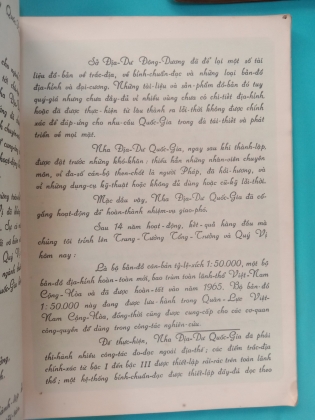 Sở Địa-Dư Đông-Dương đã để lại một số tài
liệu đồ-bản về trắc-địa, về bình-chuẩn-đạc và những loại bản-đồ
địa-hình và đại-cương. Những tài-liệu và sản-phẩm đồ-bản đó tuy
quý-giá nhưng chưa đầy-đủ vì nhiều vùng chưa có chi-tiết địa-hình
hoặc đã được thực-hiện từ lâu thành ra lỗi-thời không được chính
xác để đáp-ứng cho nhu-cầu Quốc-Gia trong đà tái-thiết và phát
triển về mọi mặt.
Nha Địa-Dư Quốc-Gia, ngay sau khi thành-lập,
được đặt trước những khó-khăn: thiếu hẳn những nhân-viên chuyên
môn, vì đa-số cán-bộ then-chốt là người Pháp, đã hồi-hương, và
vì những dụng-cụ kỹ-thuật hoặc không đủ dùng hoặc cũ-kỹ lỗi-thời.
Mặc dầu vậy, Nha Địa-Dư Quốc-Gia đã cố-
gắng hoạt-động để hoàn-thành nhiệm-vụ giao-phó.
Sau 14 năm hoạt-động, kết-quả hàng đầu mà
chúng tôi trình lên Trung-Tướng Tổng-Trưởng và Quý Vị
hôm nay:
Là bộ bản-đồ căn-bản tỷ-lệ-xích 1:50.000, một bộ
bản-đồ địa-hình hoàn-toàn mới, bao trùm toàn lãnh-thổ Việt-Nam
Cộng-Hòa và đã được hoàn-tất vào năm 1965. Bộ bản-đồ
1:50.000 này đang được lưu-hành trong Quân-Lực Việt-
Nam Cộng-Hòa, đồng-thời cũng được cung-cấp cho các cơ-quan
công-quyền để dùng trong công-tác nghiên-cứu.
Để thực-hiện, Nha Địa-Dư Quốc-Gia đã phải
thi-hành nhiều công-tác đo-đạc ngoài địa-thế; các điểm trắc-địa
chính-xác từ bậc I đến bậc III được thiết-lập rải-rác trên toàn lãnh
thổ; một hệ-thống bình-chuẩn-đạc được thiết-lập đầy-đủ dọc theo